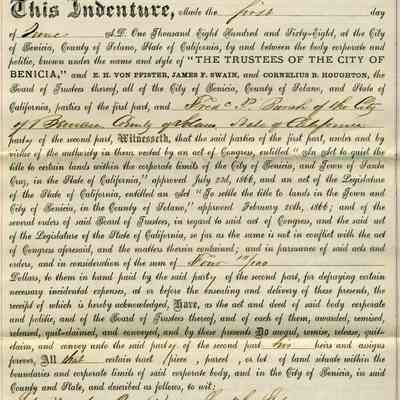 This Indenture, Made the first day
of June A.D. One Thousand Eight Hundred and Sixty-Eight, at the City of
Benicia, County of Solano, State of California, by and between the body corporate and
politic, known under the name and style of "THE TRUSTEES OF THE CITY OF
BENICIA," and E. H. VON PFISTER, JAMES F. SWAIN, and CORNELIUS B. HOUGHTON, the
Board of Trustees thereof, all of the City of Benicia, County of Solano, and State of
California, parties of the first part, and of the City
of Benicia County Solano State of California
party of the second part, Witnesseth, that the said parties of the first part, under and by
virtue of the authority in them vested by an act of Congress, entitled "An Act to quiet the
title to certain lands within the corporate limits of the City of Benicia, and Town of Santa
Cruz, in the State of California," approved July 23d, 1866, and an act of the Legislature
of the State of California, entitled an Act "To settle the title to lands in the Town and
City of Benicia, in the County of Solano," approved February 20th, 1866; and of the
several orders of said Board of Trustees, in regard to said act of Congress, and the said act
of the Legislature of the State of California, so far as the same is not in conflict with the act
of Congress aforesaid, and the matters therein contained; and in pursuance of said acts and
orders, and in consideration of the sum of
Dollars, to them in hand paid by the said party of the second part, for defraying certain
necessary incidental expenses, at or before the ensealing and delivery of these presents, the
receipt of which is hereby acknowledged, Have, as the act and deed of said body corporate
and politic, and of the Board of Trustees thereof, and of each of them, awarded, remised,
released, quit-claimed, and conveyed, and by these presents Do award, remise, release, quit-
claim, and convey unto the said party of the second part his heirs and assigns
forever, All that certain tract piece, parcel, or lot of land situate within the
boundaries and corporate limits of said corporate body, and in the City of Benicia, in said
County and State, and described as follows, to wit: